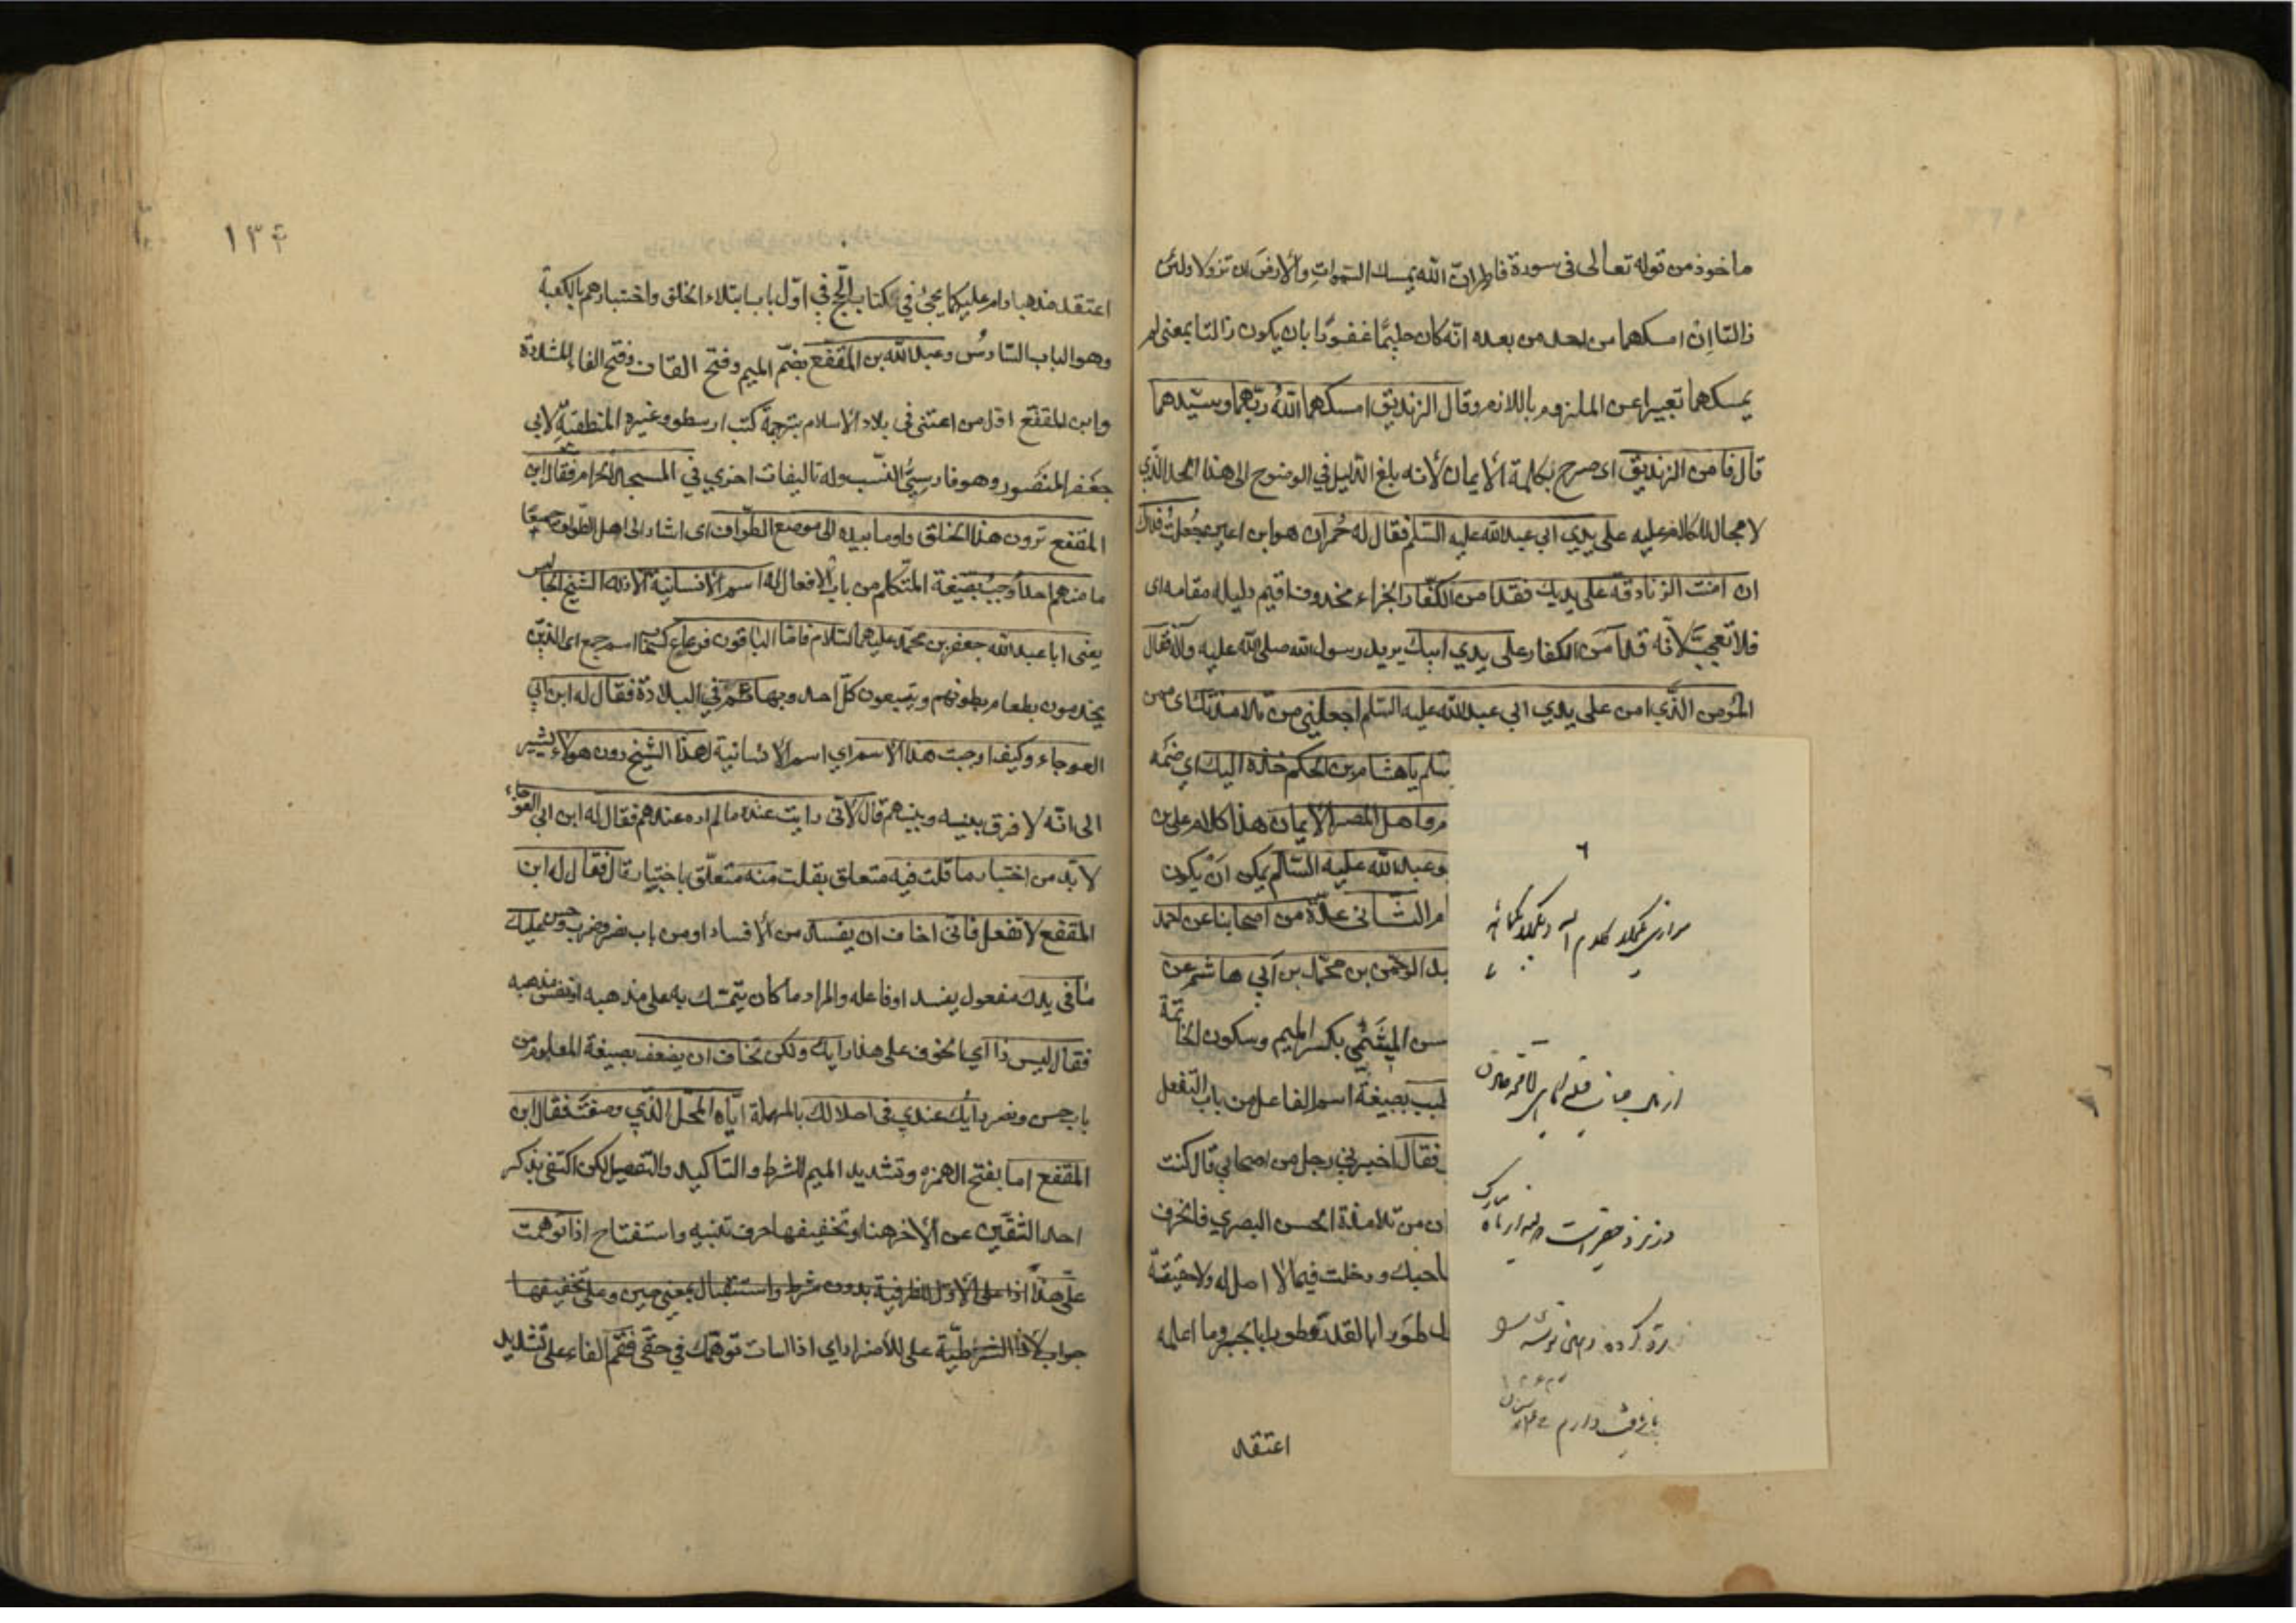 ماخوذ من قوله تعالى فى سورة فاطر ان الله يمسك السموات والارض ان تزولا ولئن
زالتا ان امسكهما من احد من بعده انه كان حليمًا غفورًا بان يكون زالتا بمعنى لم
يمسكهما تعبيرا عن الملزوم باللازم وقال الزنديق امسكهما الله ربهما وسيدهما
قال فامن الزنديق اى صرح بكلمة الايمان لانه بلغ الدليل في الوضوح الى هذا الحد الذي
لا مجال للكافر عليه على يدي ابي عبد الله عليه السلم فقال له حُمران هو ابن اعين جُعلتُ فداك
ان امنت الزنادقة على يديك فقد امن الكفار الجزاء محذوف اقيم دليله مقامه اى
فلا تعجب لانه قد آمن الكفار على يدي ابيك يريد رسول الله صلى الله عليه وآله فقال
المؤمن الذي امن على يدي ابي عبد الله عليه السلم اجعلني من تلامذتك اى
سلم يا هشام بن الحكم خذه اليك اي ضمه
م واهل المصر الايمان هذا كلام على بن
بو عبد الله عليه السلم يمكن ان يكون
امر الثانى عدّة من اصحابنا عن احمد
بد الرحمن بن محمد بن ابي هاشم عن
سن الميثمي بكسر الميم وسكون الخاتمة
طبب بصيغة اسم الفاعل من باب التفعل
فقال اخبرني رجل من اصحابي قال كنت
ان من تلامذة الحسن البصري فانحرف
احبك ودخلت فيما لا اصل له ولا حقيقة
ل طورا بالقدر وطورا بالجبر وما اعلمه
اعتقد
١٣٤
اعتقد مذهبا دام عليه كما يجئ في كتاب الحج في اول باب ابتلاء الخلق واختبارهم بالكعبة
وهو الباب السادس وعبد الله بن المقفع بضم الميم وفتح القاف وفتح الفاء المشددة
وابن المقفع اول من اعتنى فى بلاد الاسلام بترجمة كتب ارسطو وغيره المنطقية لابي
جعفر المنصور وهو فارسيُّ النسب وله تاليفات اخرى في المسجد الحرام فقال ابن
المقفع ترون هذا الخلق واومأ بيده الى موضع الطواف اى اشار الى اهل الطواف جميعًا
ما منهم احد اوجبُ بصيغة المتكلم من باب الافعال له اسم الانسانية الا ذلك الشيخ الجالس
يعنى ابا عبد الله جعفر بن محمد عليهما السلام فاما الباقون فرعاع اسم جمع اى الذين
يخدمون بطعام بطونهم ويتبعون كل احد وبهائم في البلادة فقال له ابن ابي
العوجاء وكيف اوجبت هذا الاسم اي اسم الانسانية لهذا الشيخ دون هولاء يشير
الى انه لا فرق بينه وبينهم قال لانى رايت عنده ما لم اره عندهم فقال له ابن ابي العوجاء
لا بد من اختبار ما قلت فيه متعلق بقلت منه متعلق باختبار قال فقال له ابن
المقفع لا تفعل فانى اخاف ان يفسد من الافساد او من باب نصر وضرب وحسن عليك
ما فى يدك مفعول يفسد او فاعله والمراد ما كان يتمسك به على مذهبه او نفس مذهبه
فقال ليس ذا اي الخوف على هذا رايك ولكن تخاف ان يضعف بصيغة المعلوم من
باب حسن ونصر رايك عندي فى احلالك بالمهملة اياه المحل الذي وصفت فقال ابن
المقفع اما بفتح الهمزه وتشديد الميم للشرط والتاكيد والتفصيل لكن اكتفى بذكر
احد الشقين عن الاخر هنا وتخفيفها حرف تنبيه واستفتاح اذا توهمت
علي هذا اذا على الاول للظرفية بدون شرط واستقبال بمعنى حين وعلى تخفيفها
جواب لاذا الشرطية على للاضرار اي اذا اسات توهمك في حقى فقم الفاء على تشديد